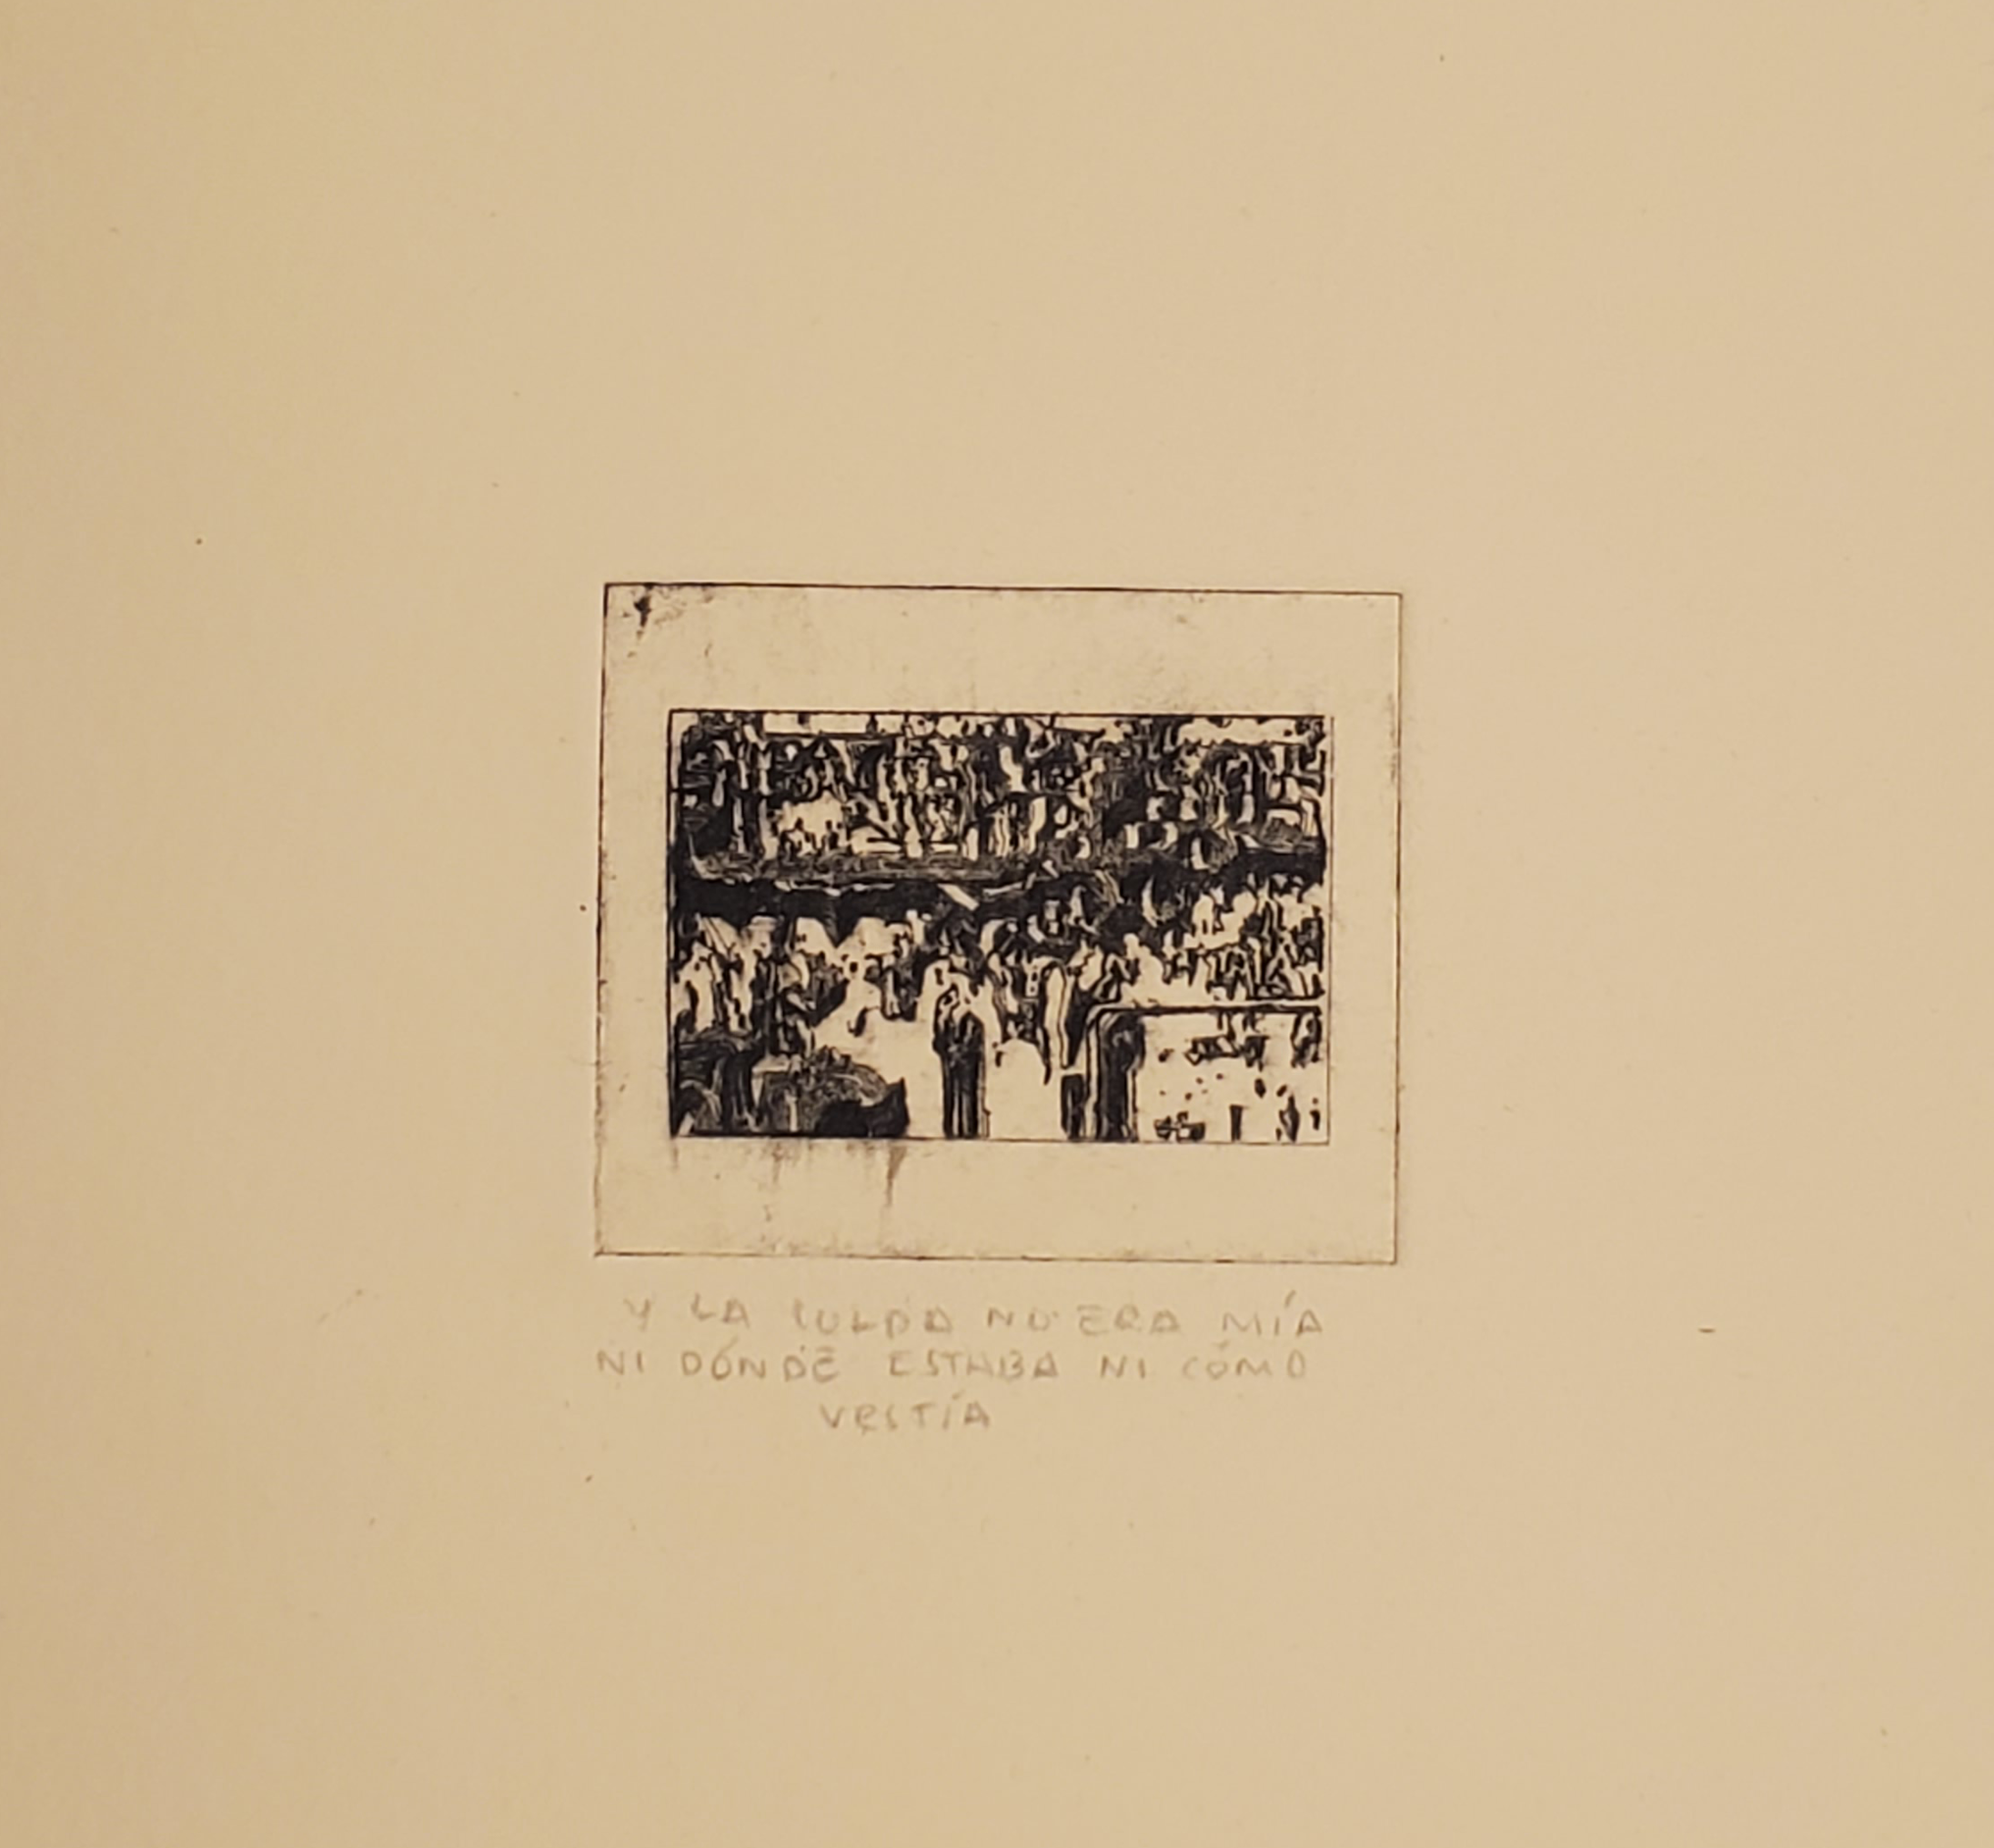 Y LA CULPA NO ERA MÍA
NI DÓNDE ESTABA NI CÓMO
VESTÍA